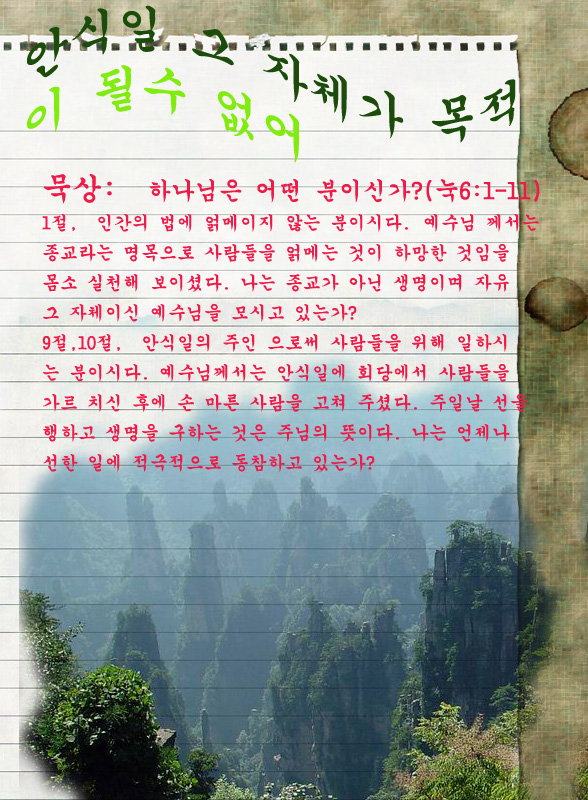 안식일 그 자체가 목적
이 될수 없어
묵상: 하나님은 어떤 분이신가?(눅6:1-11)
1절, 인간의 법에 얽메이지 않는 분이시다. 예수님 께서는
종교라는 명목으로 사람들을 얽메는 것이 하망한 것임을
몸소 실천해 보이셨다. 나는 종교가 아닌 생명이며 자유
그 자체이신 예수님을 모시고 있는가?
9절,10절, 안식일의 주인 으로써 사람들을 위해 일하시
는 분이시다. 예수님께서는 안식일에 회당에서 사람들을
가르 치신 후에 손 마른 사람을 고쳐 주셨다. 주일날 선을
행하고 생명을 구하는 것은 주님의 뜻이다. 나는 언제나
선한 일에 적극적으로 동참하고 있는가?